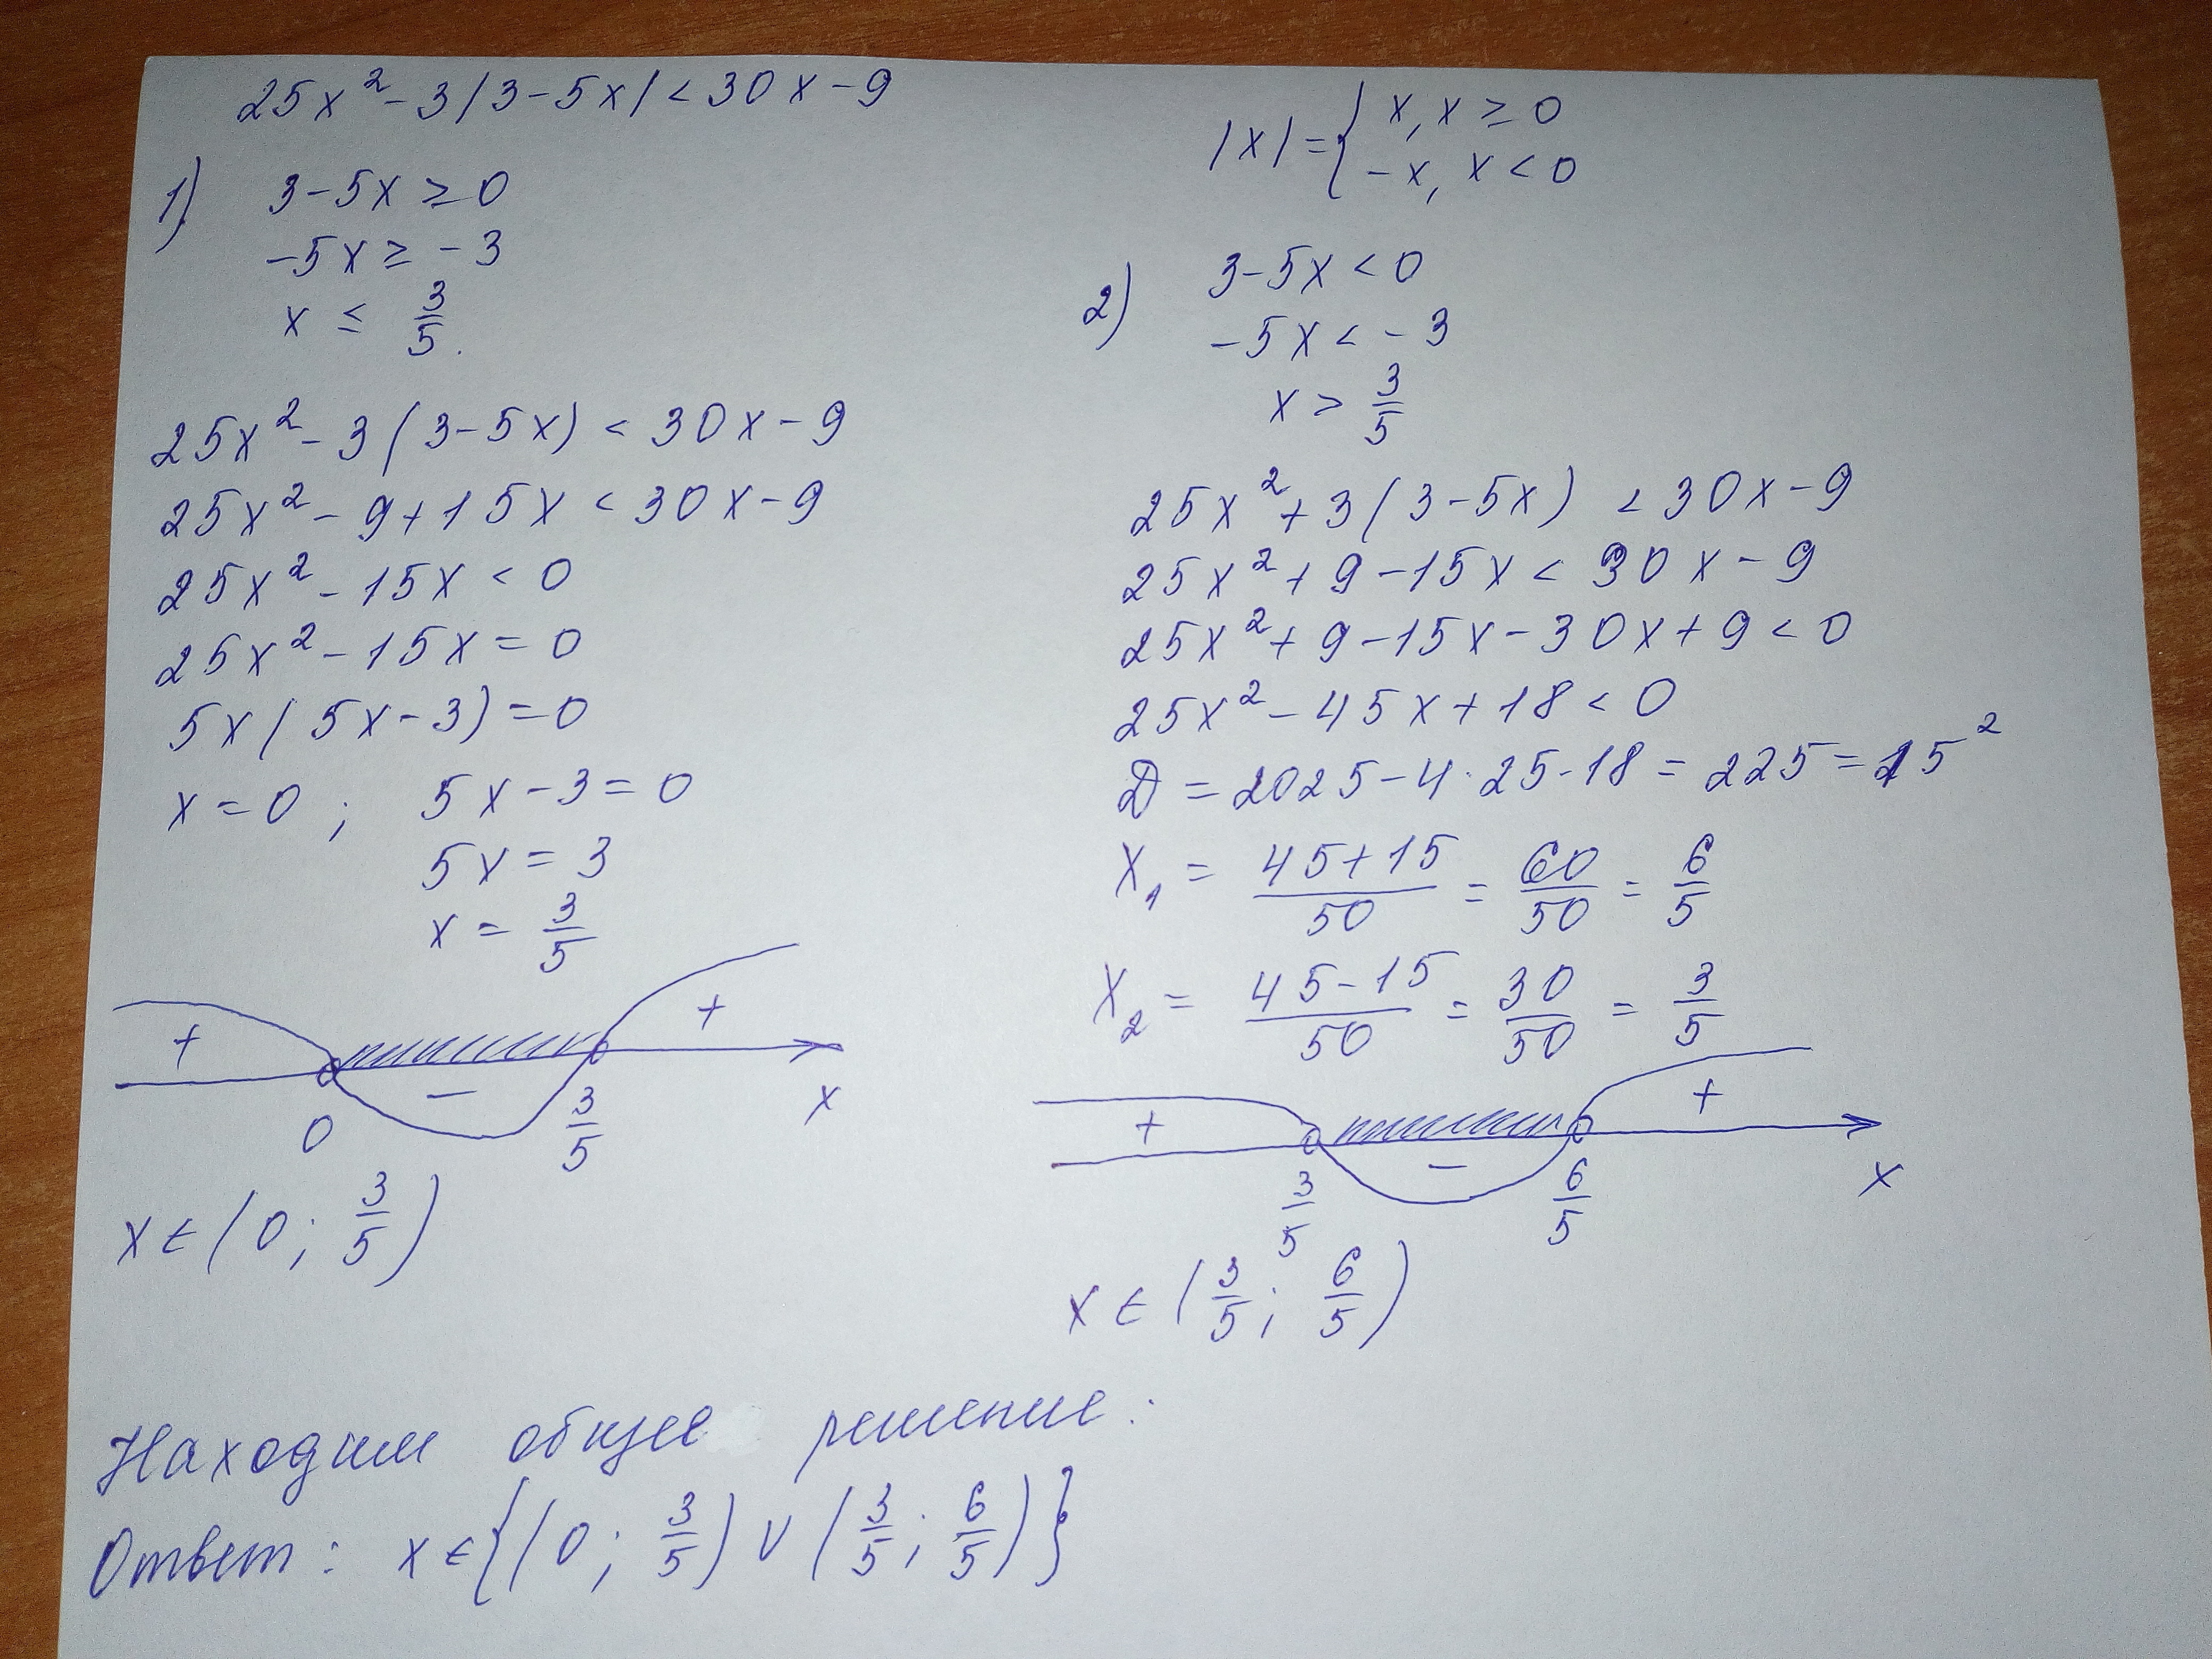 25x² - 3|3 - 5x| < 30x - 9
|x| = { x, x ≥ 0
-x, x < 0
1) 3 - 5x ≥ 0
-5x ≥ -3
x ≤ 3/5.
25x² - 3(3 - 5x) < 30x - 9
25x² - 9 + 15x < 30x - 9
25x² - 15x < 0
25x² - 15x = 0
5x(5x - 3) = 0
x = 0; 5x - 3 = 0
5x = 3
x = 3/5
+ - +
0 3/5 x
x ∈ (0; 3/5)
2) 3 - 5x < 0
-5x < -3
x > 3/5
25x² + 3(3 - 5x) < 30x - 9
25x² + 9 - 15x < 30x - 9
25x² + 9 - 15x - 30x + 9 < 0
25x² - 45x + 18 < 0
D = 2025 - 4·25·18 = 225 = 15²
x₁ = (45+15)/50 = 60/50 = 6/5
x₂ = (45-15)/50 = 30/50 = 3/5
+ - +
3/5 6/5 x
x ∈ (3/5; 6/5)
Находим общее решение:
Ответ: x ∈ {(0; 3/5) ∪ (3/5; 6/5)}